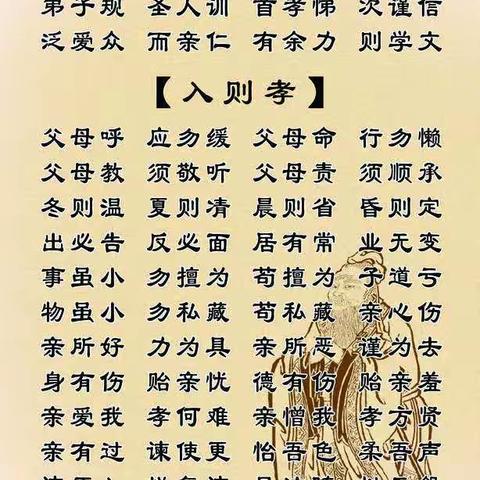 弟子规 圣人训 首孝悌 次谨信
泛爱众 而亲仁 有余力 则学文
【入则孝】
父母呼 应勿缓 父母命 行勿懒
父母教 须敬听 父母责 须顺承
冬则温 夏则凊 晨则省 昏则定
出必告 反必面 居有常 业无变
事虽小 勿擅为 苟擅为 子道亏
物虽小 勿私藏 苟私藏 亲心伤
亲所好 力为具 亲所恶 谨为去
身有伤 贻亲忧 德有伤 贻亲羞
亲爱我 孝何难 亲憎我 孝方贤
亲有过 谏使更 怡吾色 柔吾声